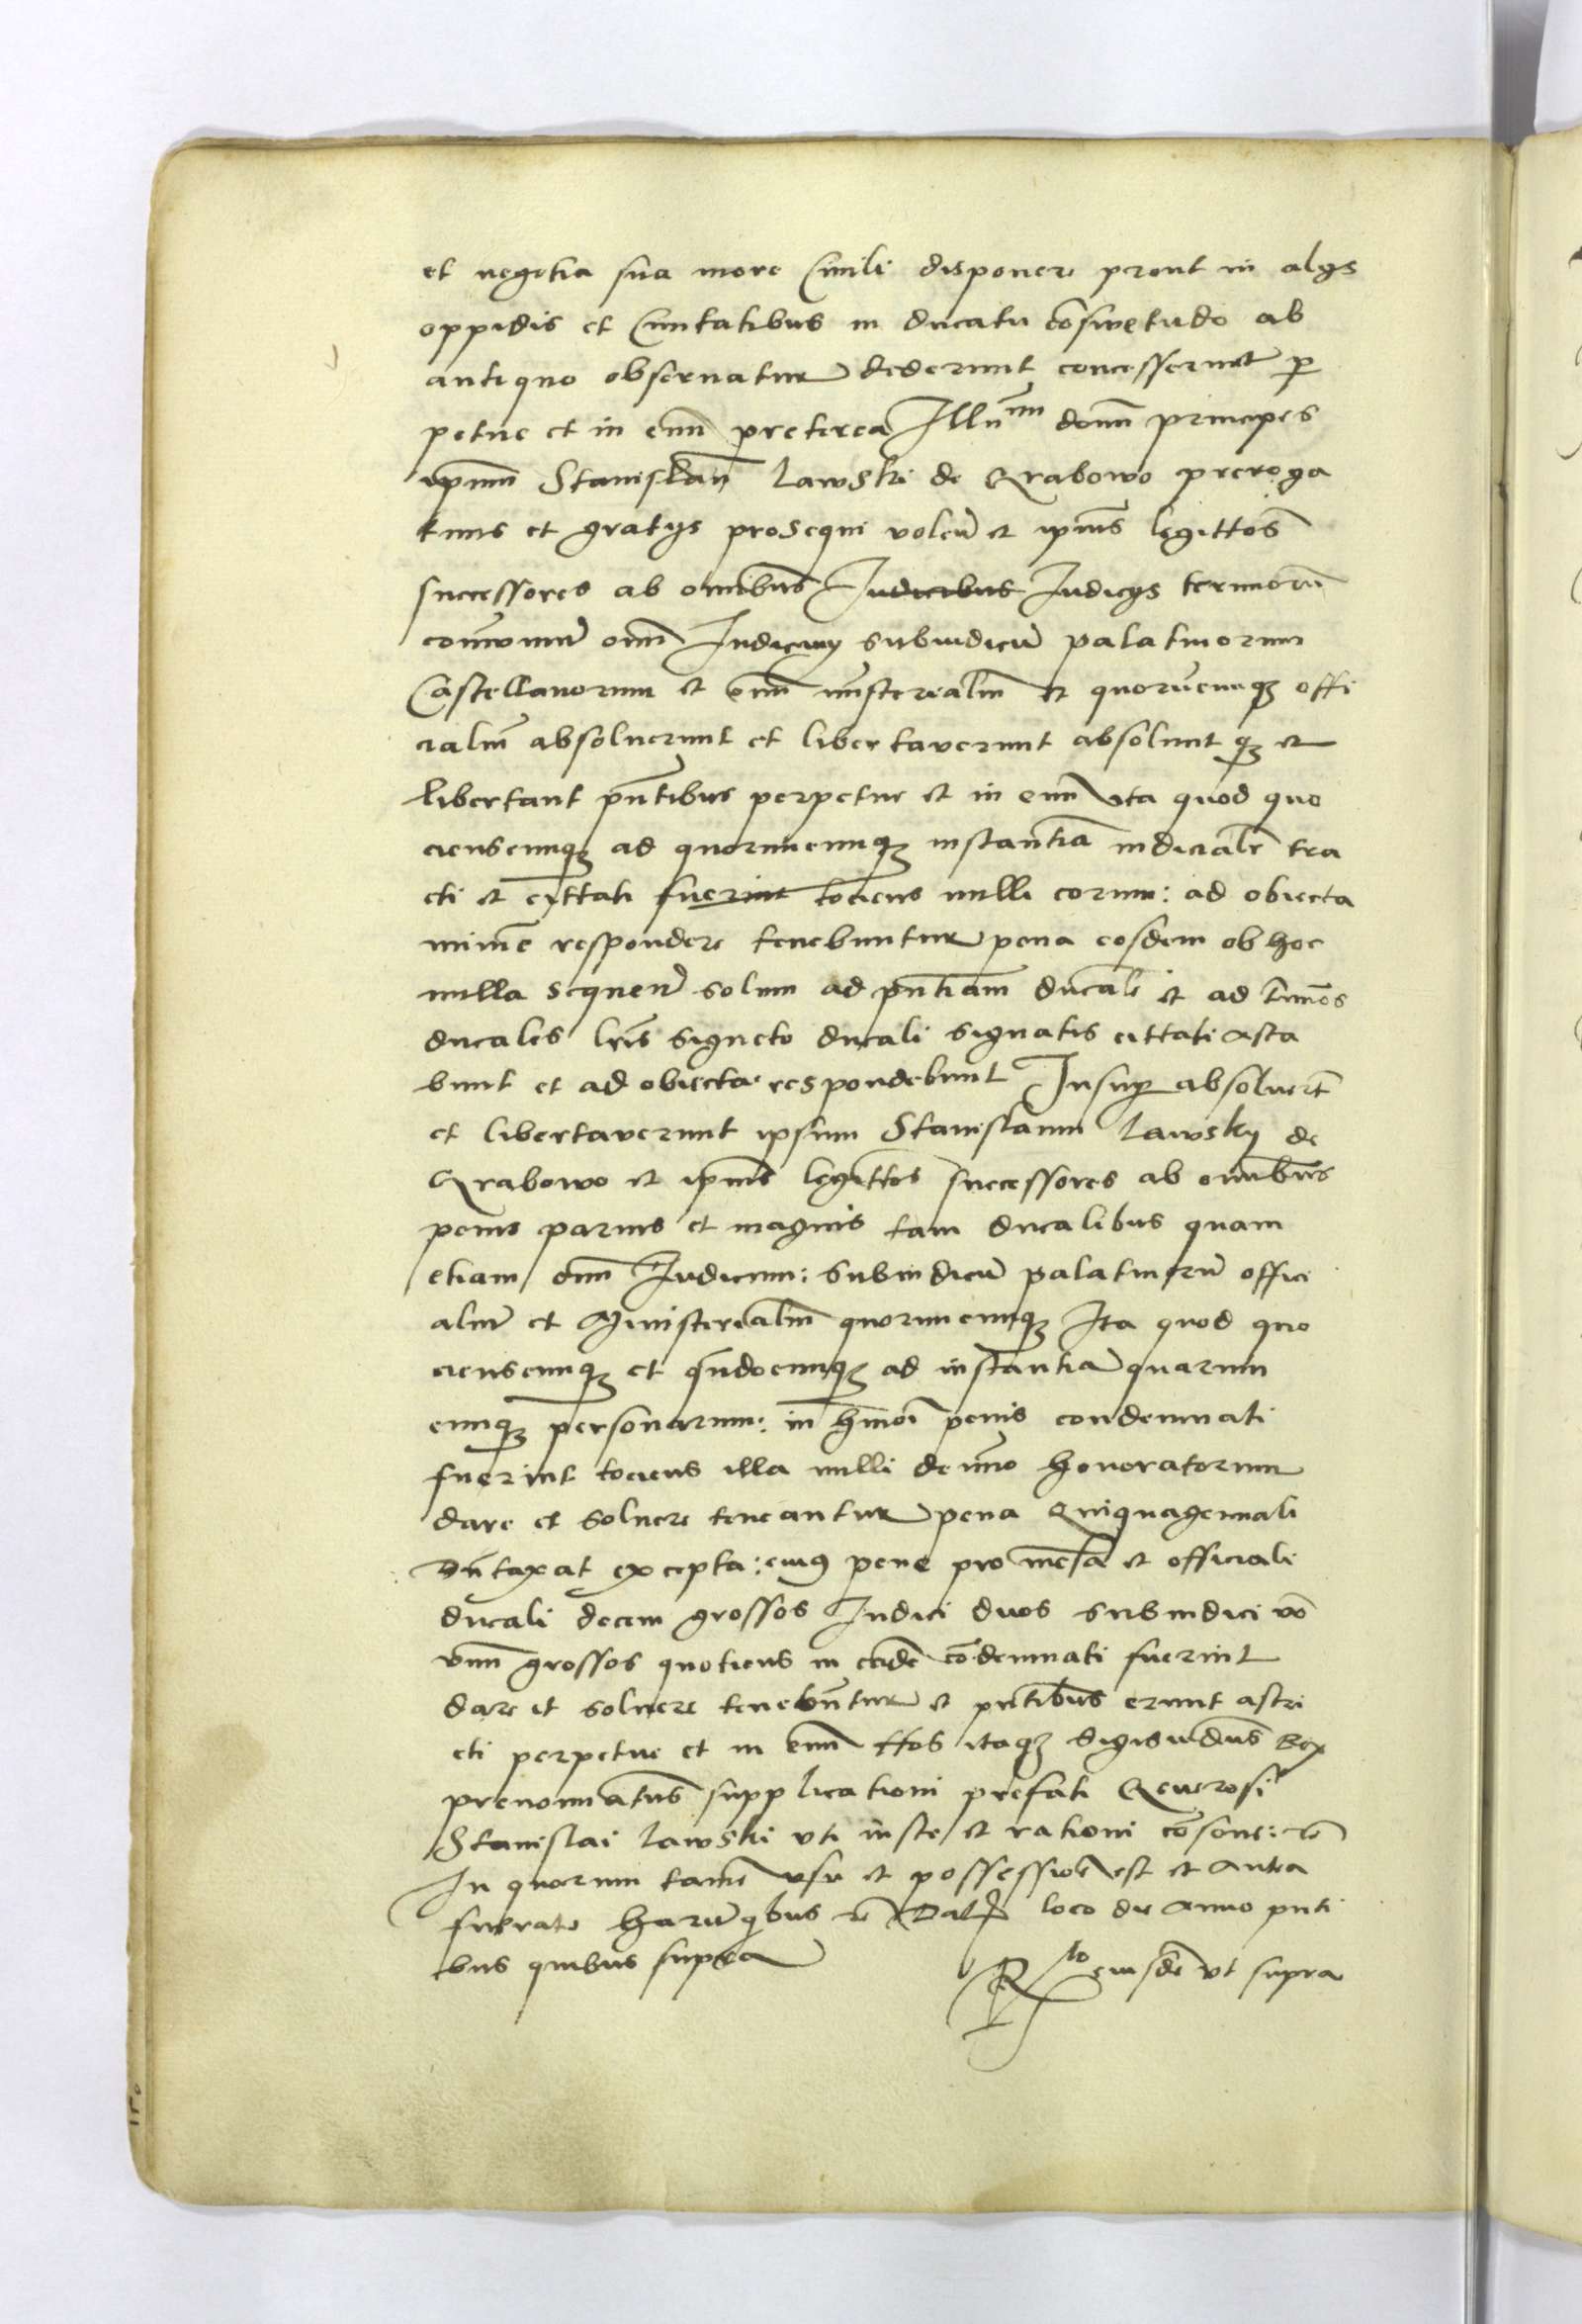 et negotia sua more Civili disponere prout in alijs
oppidis et Civitatibus in ducatu cōswetudo ab
antiquo observatur dederunt concesserunt p̄
petue et in evū preterea Illuᵐⁱ domī principes
ipm̄ Stanislaū Lawski de Grabowo preroga
tivis et gratijs prosequi volen̄ et ipius legittos
successores ab omībus Judicibus Judicijs terrīorū
communiter omī Judicum subiudicū palatinorum
Castellanorum et omī ministerialiū et quorūcunqȝ offi
cialiū absolverunt et libertaverunt absolvunt qȝ et
libertant pn̄tibus perpetue et in evū Ita quod quo
cienscunqȝ ad quorumcunqȝ instantiā iudicialē tra
cti et cittati fuerint tociens nulli eorum: ad obiecta
minīe respondere tenebuntur pena eosdem ob hoc
nulla sequen̄ solum ad pn̄tiam ducalē et ad tīnos
ducales lr̄is signeto ducali signatis cittati asta
bunt et ad obiecta respondebunt Insup absoluert̄
et libertaverunt ipsum Stanislaum Lawsky de
Grabowo et ipius legittos successores ab omībus
penis parvis et magnis tam ducalibus quam
etiam omī Judicum: subiudicū palatinorū offici
aliū et Ministerialiū quorumcunqȝ Ita quod quo
cienscunqȝ et qn̄docunqȝ ad instantiā quarum
cunqȝ personarum: in hm̄oi penis condemnati
fuerint tociens illa nulli de īmo honoratorum
dare et soluere teneantur pena Quiquagennali
Dūtaxat excepta: cuius pene pro mensa et officiali
ducali decem grossos Judici duos subiudici vō
vnū grossos quotiens in eadē cōdemnati fuerint
dare et soluere tenebuntur et pn̄tibus erunt astri
cti perpetue et in evū Nos itaqȝ Sigisūdus Rex
prenominatus supplicationi prefati Generosi
Stanislai Lawski vti iuste et rationi cōsone: rē
In quorum tamē vsu et possessione est et antea
fuerat harū qbus rē Dat loco die Anno pn̄ti
bus quibus supra
Rᵗᵒ eiusdē vt supra